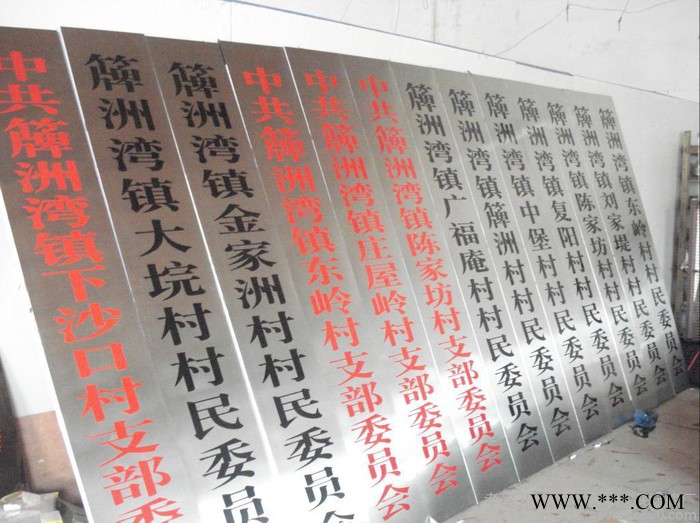 中共簰洲湾镇下沙口村支部委
簰洲湾镇大垸村村民委员
簰洲湾镇金家洲村村民委员会
中共簰洲湾镇东岭村支部委员会
中共簰洲湾镇庄屋岭村支部委员会
中共簰洲湾镇陈家坊村支部委员会
簰洲湾镇广福庵村村民委员会
簰洲湾镇簰洲村村民委员会
簰洲湾镇中堡村村民委员会
簰洲湾镇复阳村村民委员会
簰洲湾镇陈家坊村村民委员会
簰洲湾镇刘家堤村村民委员会
簰洲湾镇东岭村村民委员会
WWW.***.COM